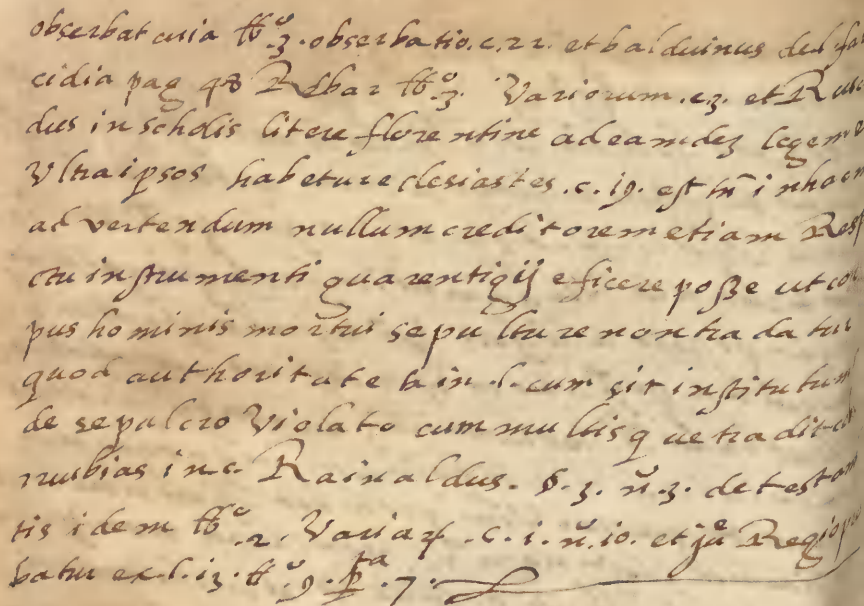 obserbat curia lib.º 3. obserbatio. c. 22. et balduinus del fal
cidia pag 98 Rebar lib.º 3. Variorum. c. 3. et R
dus in scholis litere florentine ad eamdez legem
Vltra ipsos habetur eclesiastes. c. 19. est tñ in hoc
advertendum nullum creditorem etiam Resp
ctu instrumenti quarentigij eficere poße ut cor
pus hominis mortui sepulture non tradatur
quod authoritate in .l. cum sit institutum
de sepulcro Violato cum multis que tradit
rrubias in c. Rainaldus. §. 3. nũ. 3. de testam
tis idem lib.º 2. Variaꝝ. c. 1. nũ. 10. et Regio
batur ex l. 13. tt.º 9. pta 7.